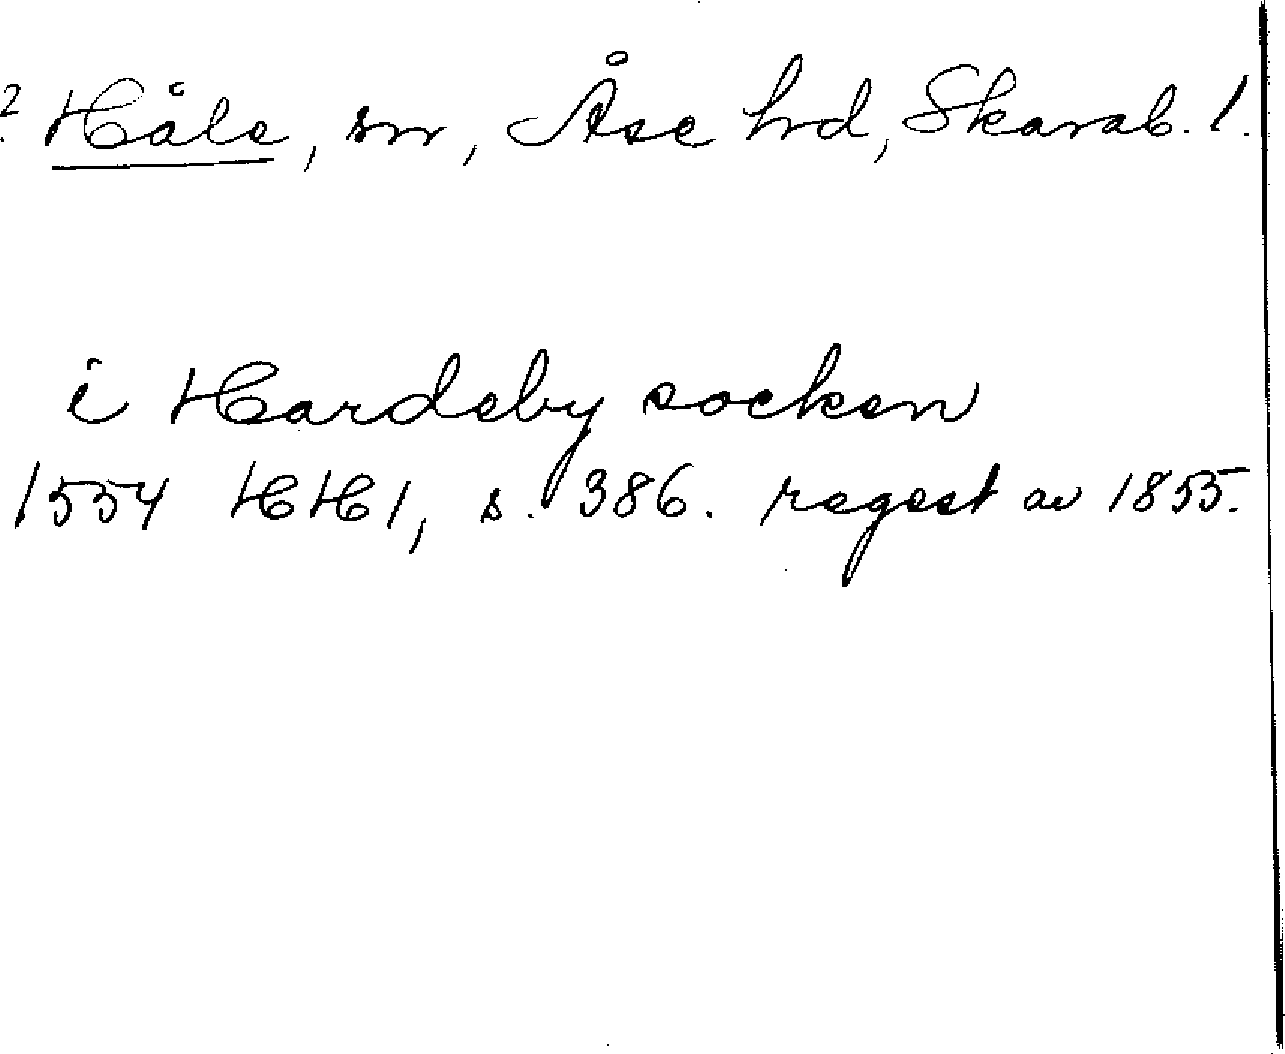 ? Håle, sn, Åse hd, Skarab. l.
i Hardeby socken
1554 HH1, s. 386. regest av 1855.